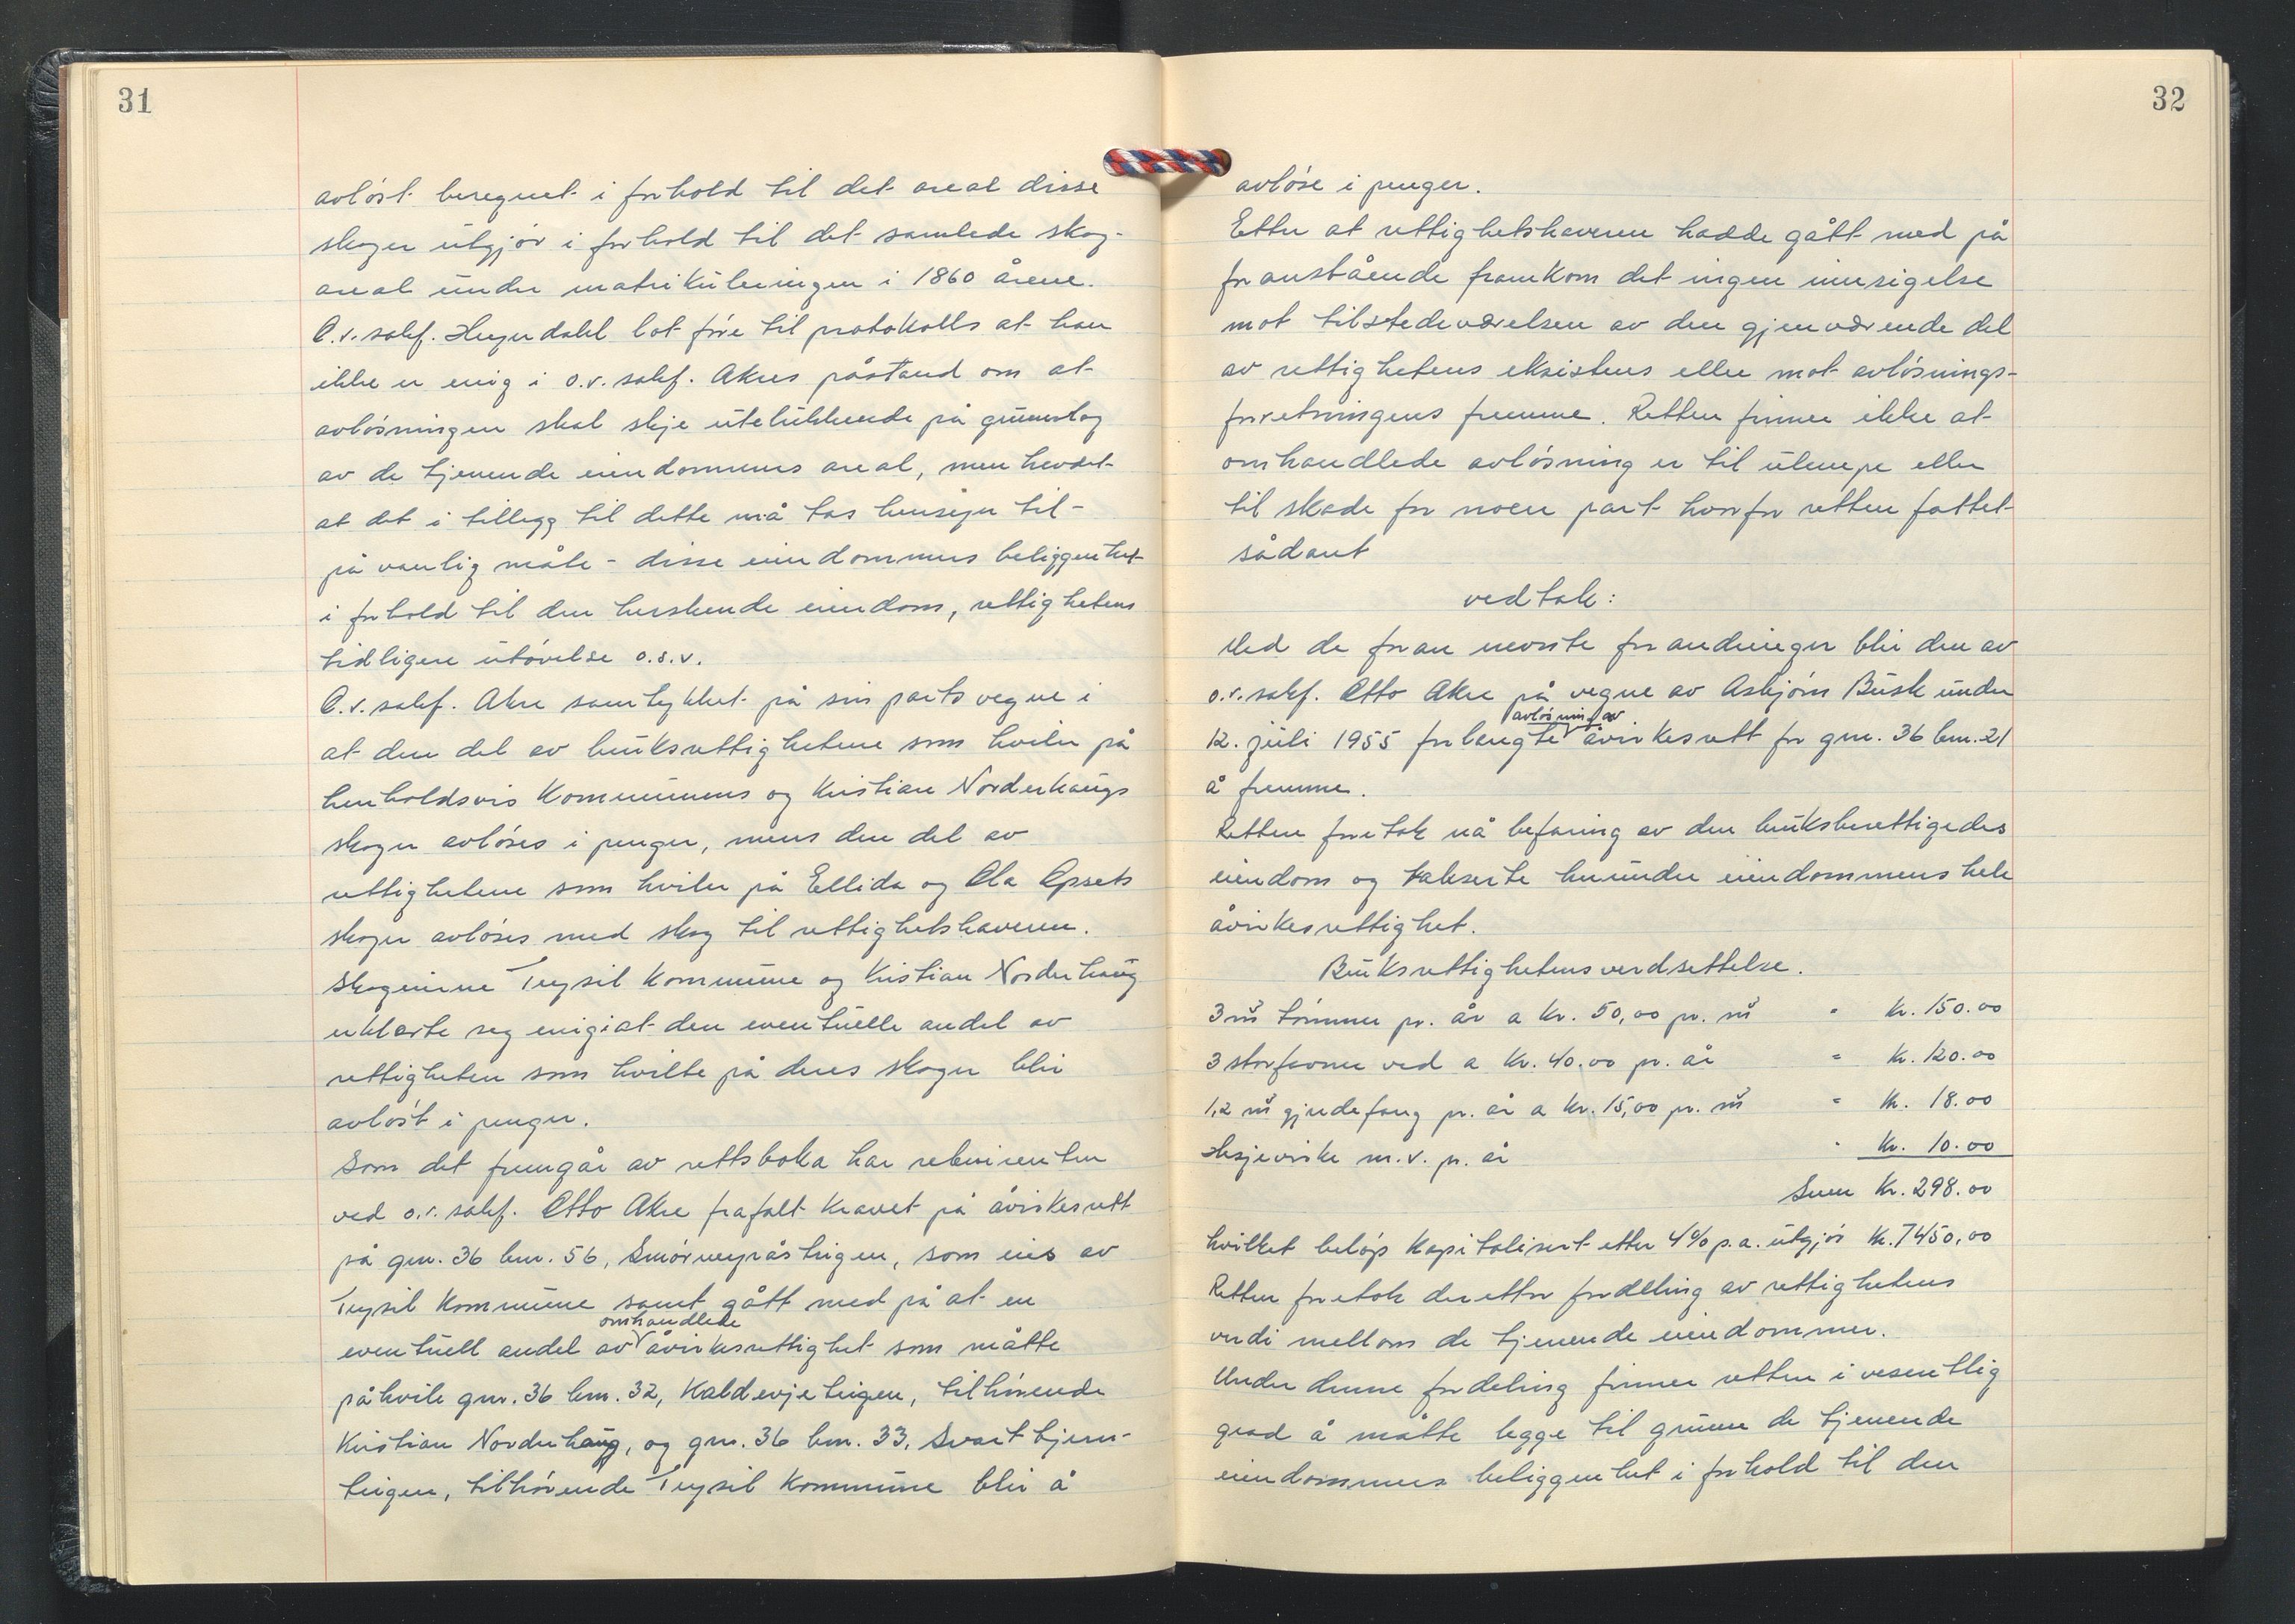 31
avløst beregnet i forhold til det areal disse
skoger utgjør i forhold til det samlede skog-
areal under matrikuleringen i 1860 årene.
O.r.sakf. Heyerdahl lot føre til protokolls at han
ikke er enig i o.r.sakf. Akres påstand om at
avløsningen skal skje utelukkende på grunnlag
av de tjenende eiendommers areal, men hevdet
at det i tillegg til dette må tas hensyn til -
på vanlig måte - disse eiendommers beliggenhet
i forhold til den herskende eiendom, rettighetens
tidligere utøvelse o.s.v.
O.r.sakf. Akre samtykket på sin parts vegne i
at den del av bruksrettighetene som hviler på
henholdsvis Kommunens og Kristian Norderhaugs
skoger avløses i penger, mens den del av
rettighetene som hviler på Ellida og Ola Opsets
skoger avløses med skog til rettighetshaveren.
Skogeierne Trysil Kommune og Kristian Norderhaug
erklærte seg enig i at den eventuelle andel av
rettigheten som hvilte på deres skoger blir
avløst i penger.
Som det fremgår av rettsboka har rekvirenten
ved o.r.sakf. Otto Akre frafalt kravet på åvirkesrett
på gnr. 36 bnr. 56, Smørmyråsteigen, som eies av
Trysil Kommune samt gått med på at en
eventuell andel av omhandlede åvirkesrettighet som måtte
påhvile gnr. 36 bnr. 32, Kaldevjeteigen, tilhørende
Kristian Norderhaug, og gnr. 36 bnr. 33, Svarttjern-
teigen, tilhørende Trysil Kommune blir å
32
avløse i penger.
Etter at rettighetshaveren hadde gått med på
foranstående framkom det ingen innsigelse
mot tilstedeværelsen av den gjenværende del
av rettighetens eksistens eller mot avløsnings-
forretningens fremme. Retten finner ikke at
omhandlede avløsning er til ulempe eller
til skade for noen part hvorfor retten fattet
sådant
vedtak:
Med de foran nevnte forandringer blir den av
o.r.sakf. Otto Akre på vegne av Asbjørn Busk under
12. juli 1955 forlangte avløsning av åvirkesrett for gnr. 36 bnr. 21
å fremme.
Retten foretok nå befaring av den bruksberettigedes
eiendom og takserte herunder eiendommens hele
åvirkesrettighet.
Bruksrettighetens verdsettelse.
3 m³ tømmer pr. år a kr. 50,00 pr. m³ = kr. 150.00
3 storfavner ved a kr. 40.00 pr. år = kr. 120.00
1,2 m³ gjerdefang pr. år a kr. 15,00 pr. m³ = kr. 18.00
Hesjevirke m.v. pr. år - kr. 10.00
Sum kr. 298.00
hvilket beløp kapitalisert etter 4% p.a. utgjør kr. 7450,00
Retten foretok deretter fordeling av rettighetens
verdi mellom de tjenende eiendommer.
Under denne fordeling finner retten i vesentlig
grad å måtte legge til grunn de tjenende
eiendommers beliggenhet i forhold til den